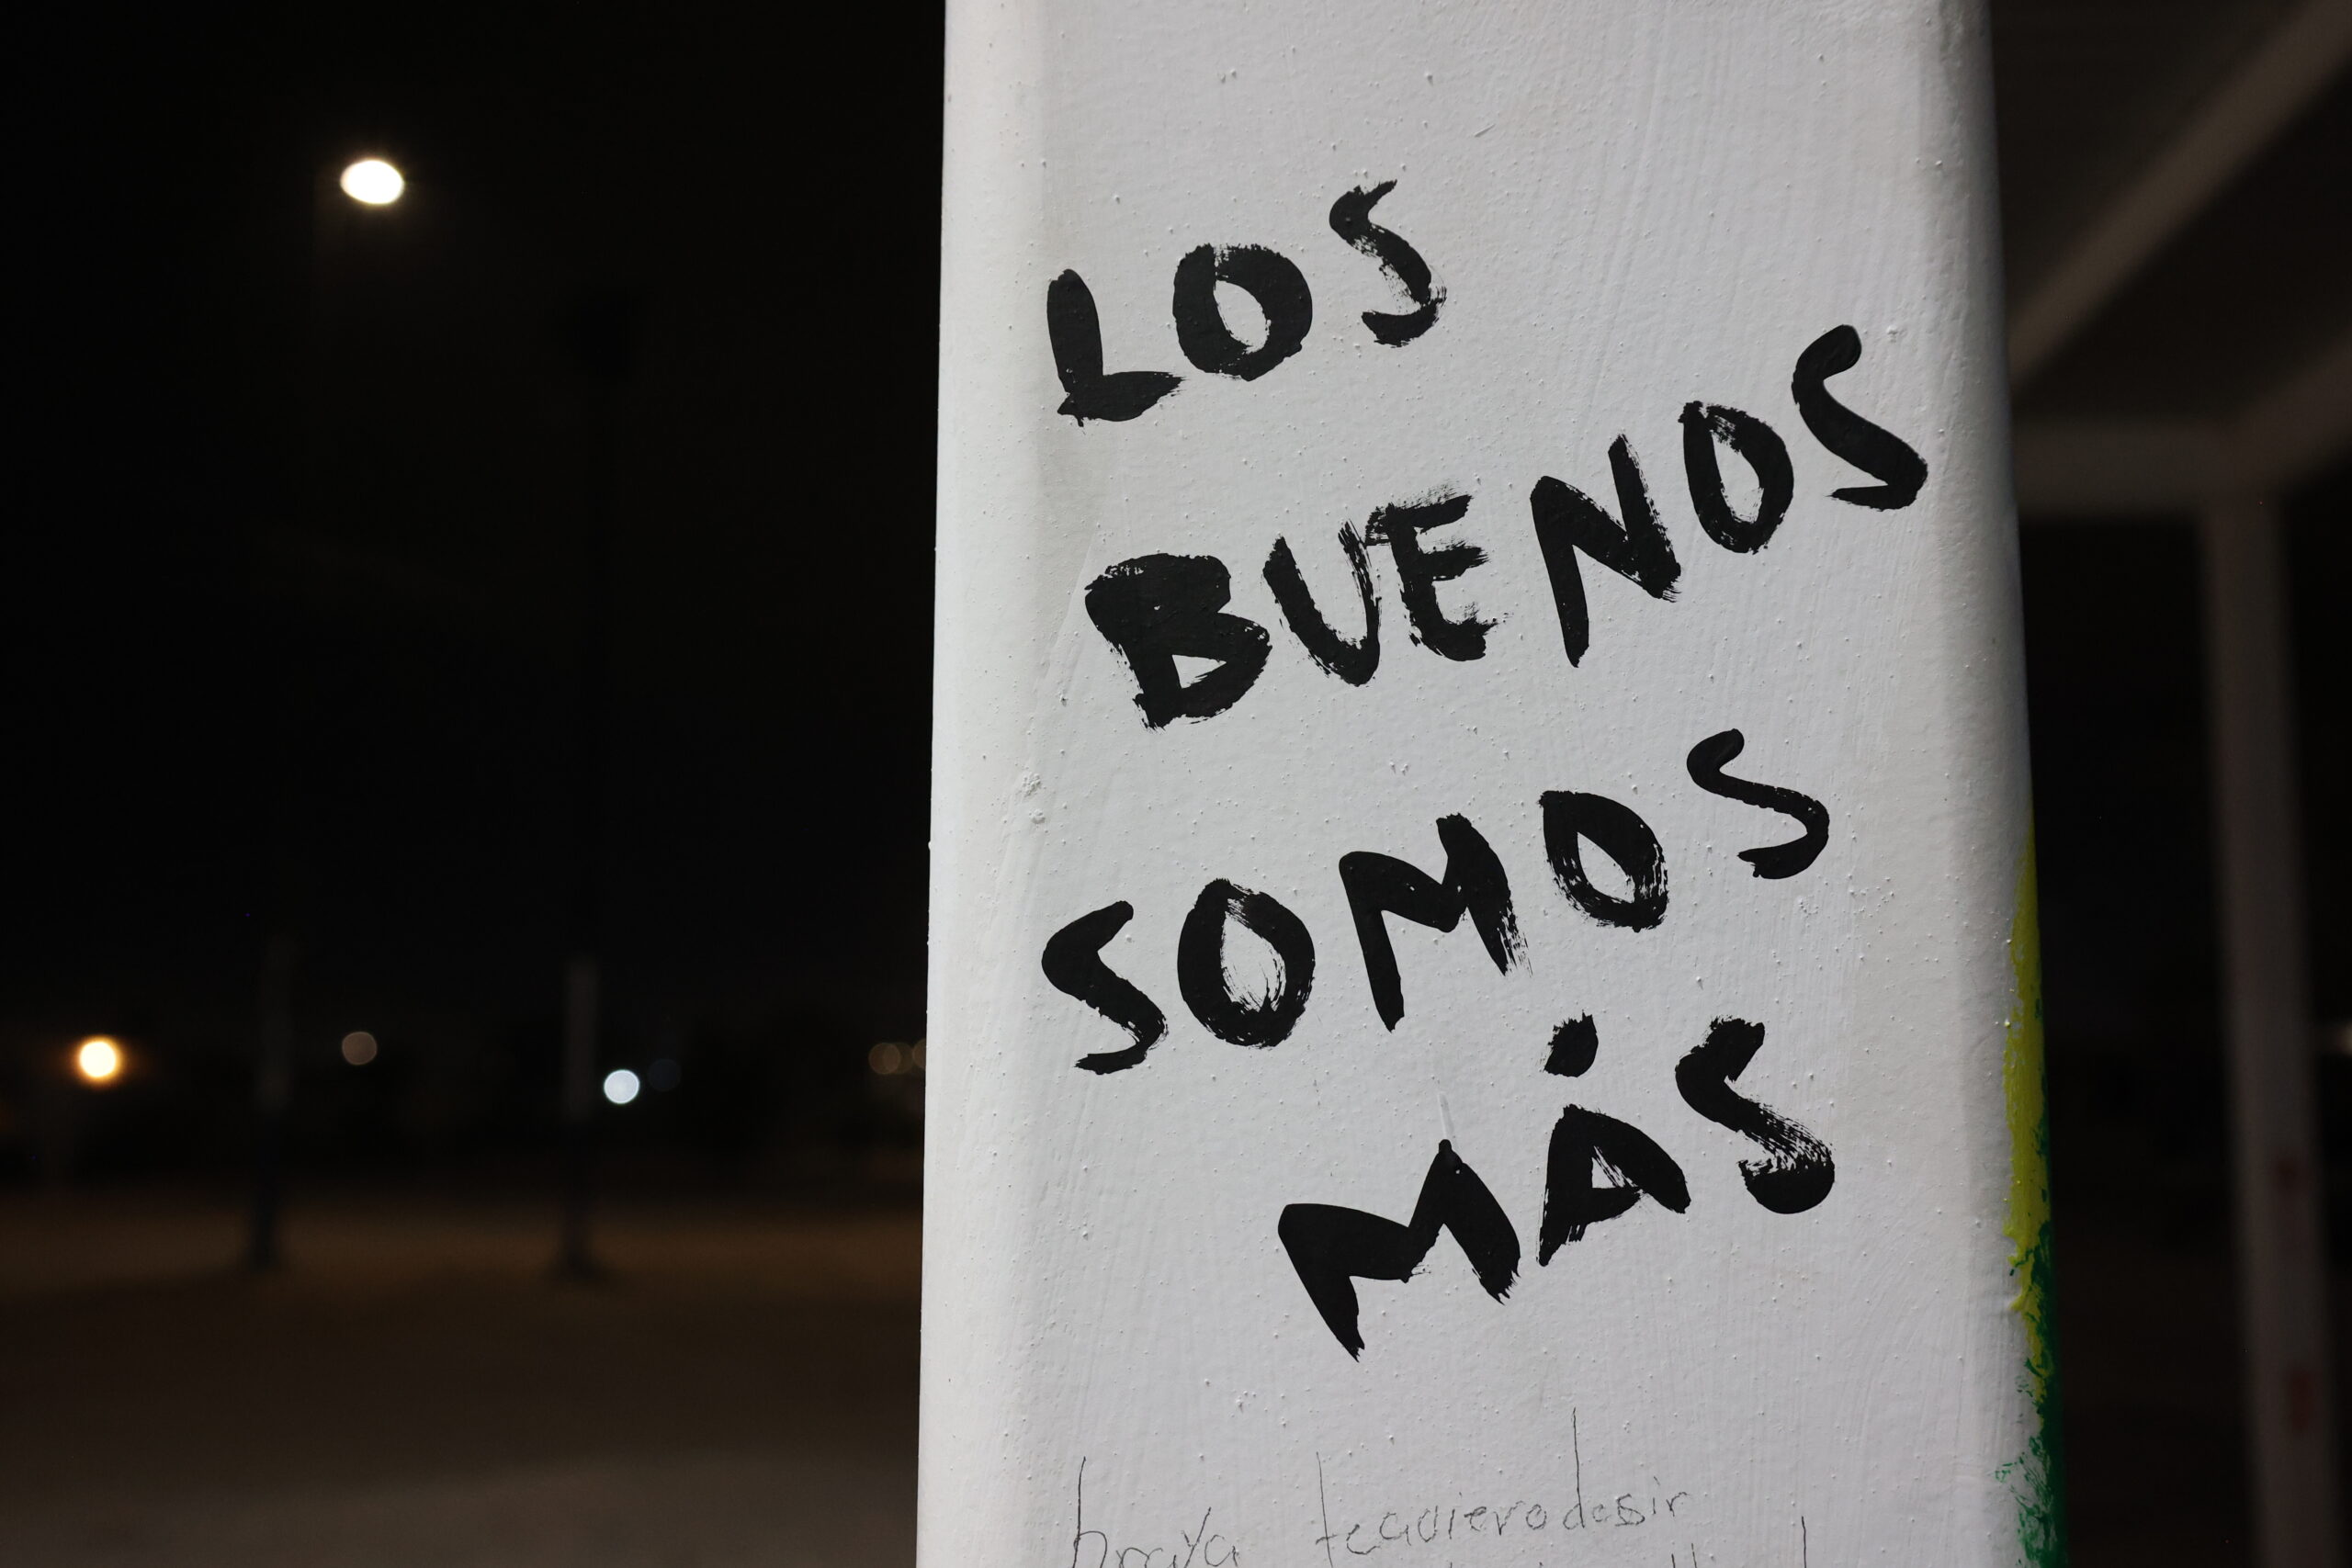 LOS
BUENOS
SOMOS
MÁS
braya tequierodesir